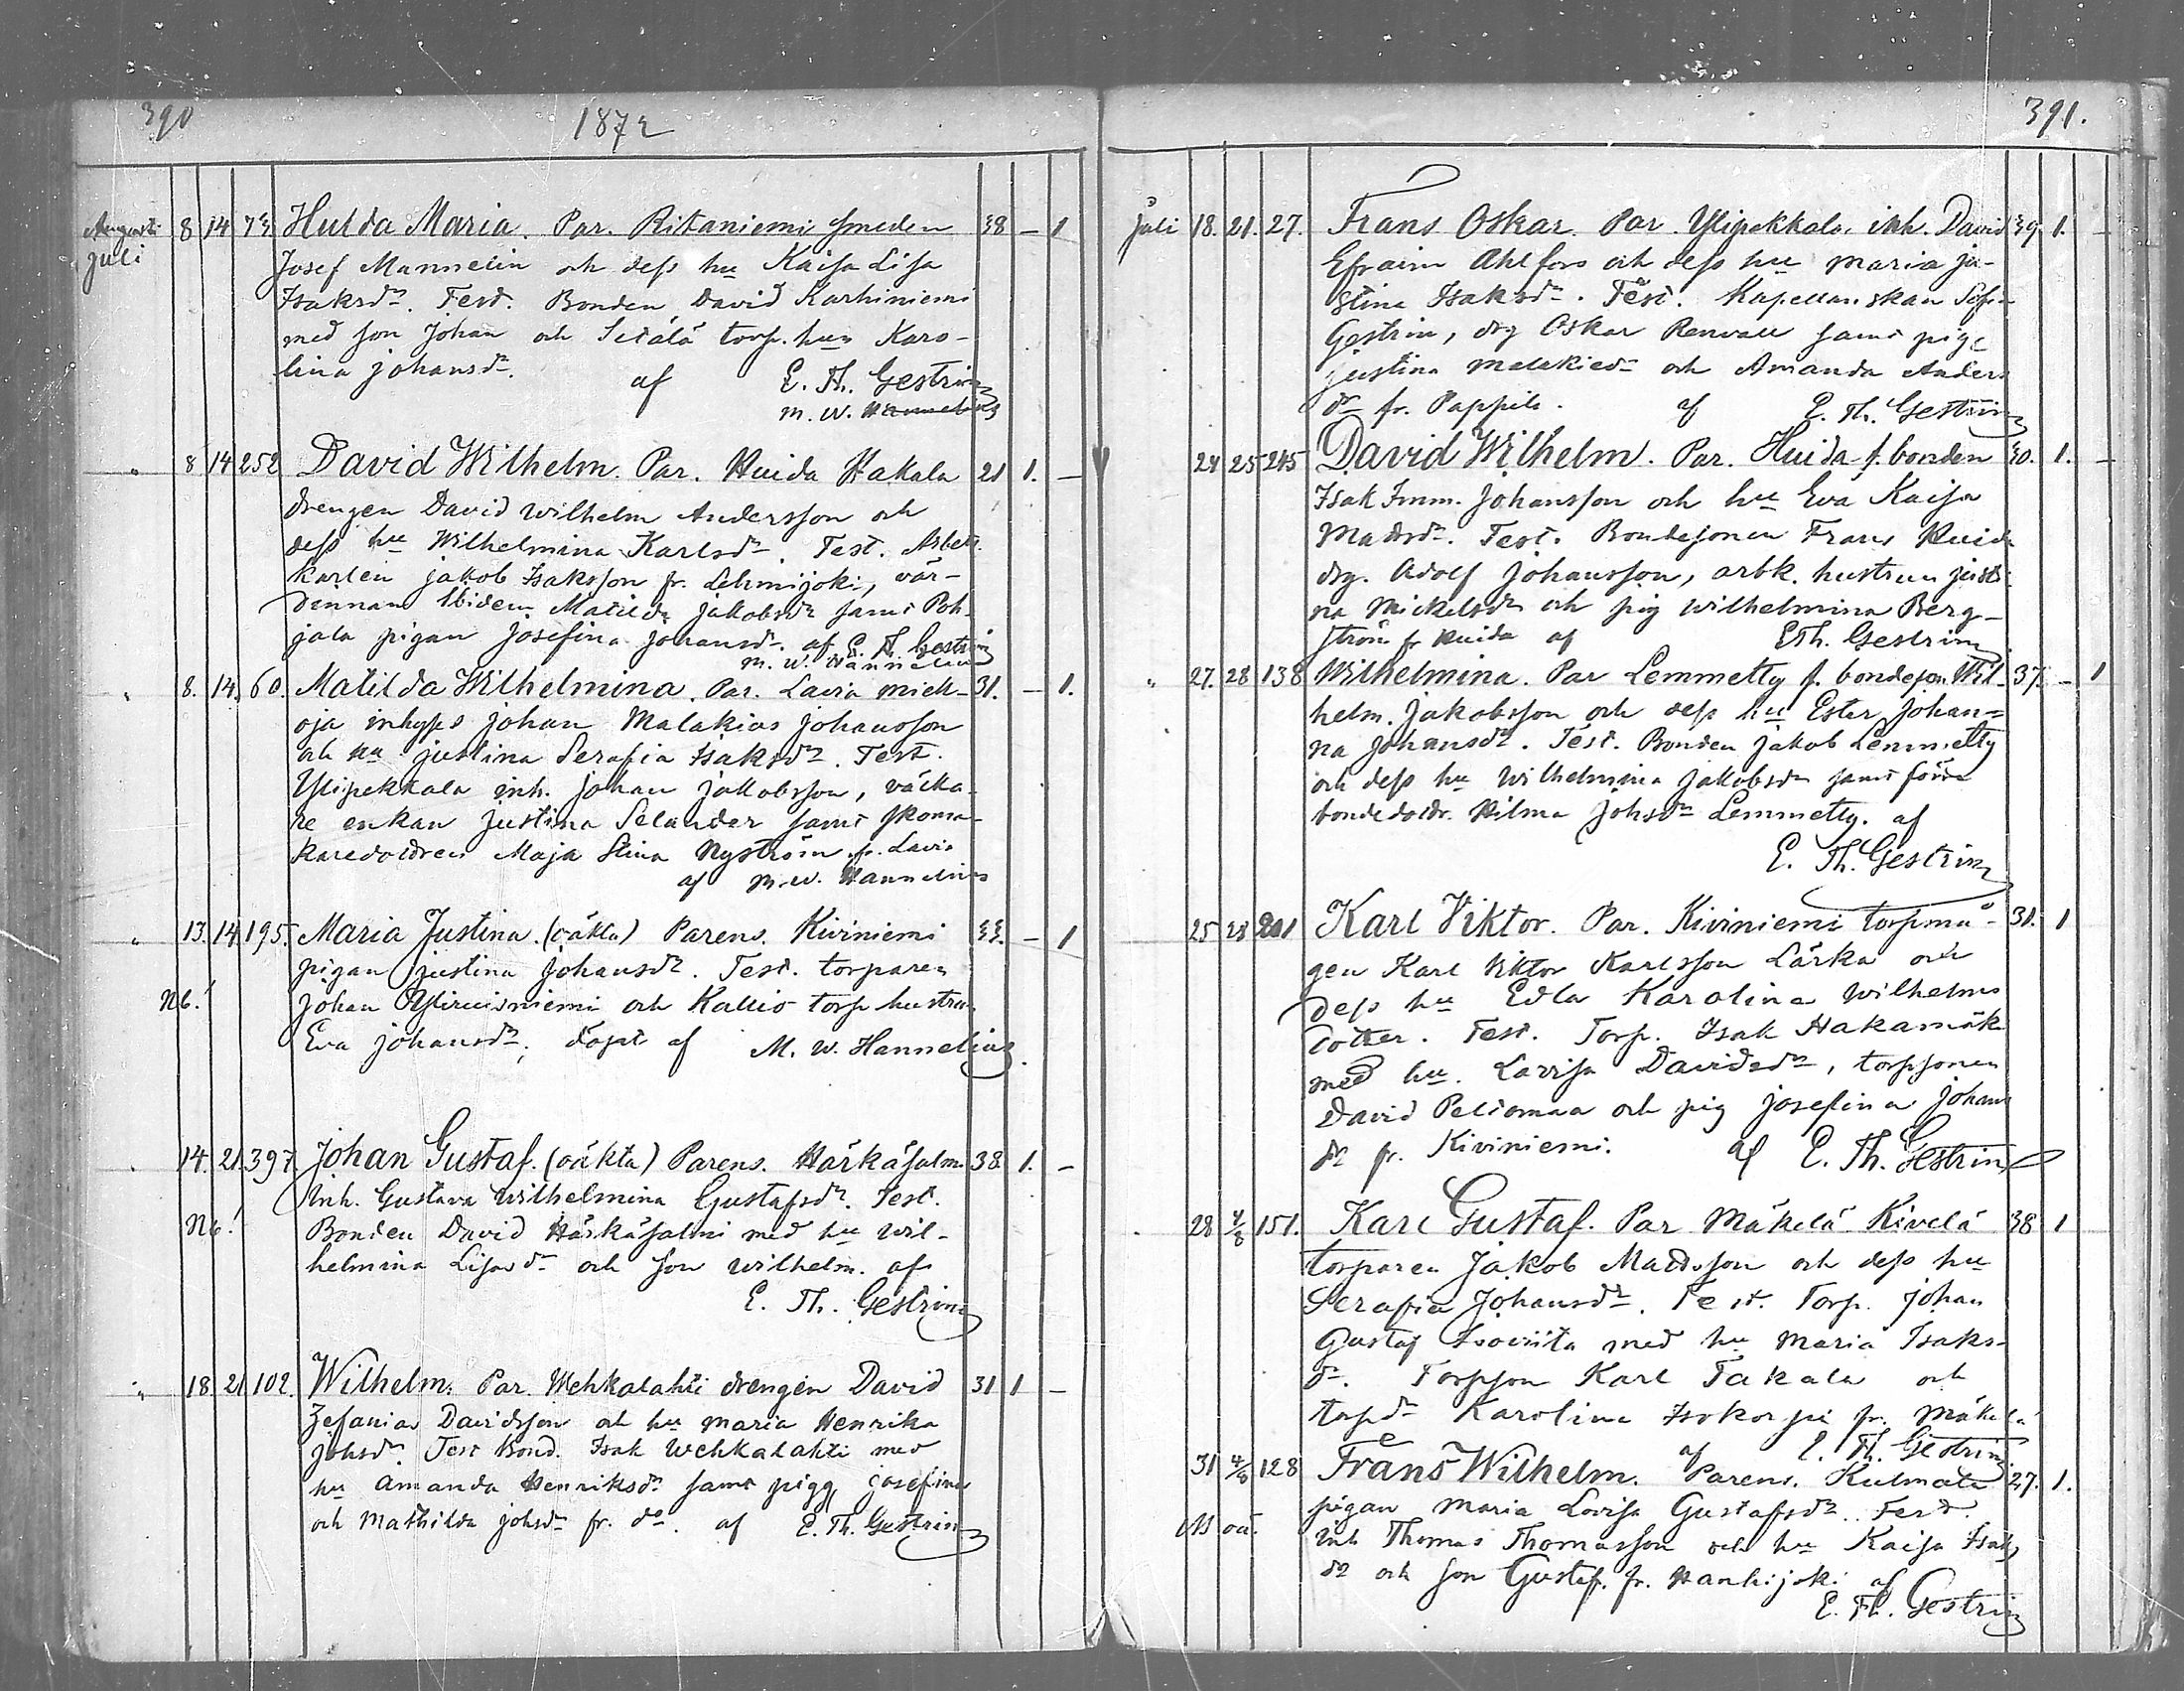 390
1872
Augusti 8 14 72 Hulda Maria. Par. Ritaniemi smeden 38 – 1
Juli
Josef Mannelin och dess hu Kaisa Lisa
Isaksdr. Test. Bonden David Karhiniemi
med son Johan och Setälä torp. hun Karo-
lina Johansdr. af E. Th. Gestrin
M. W. Hannelius
" 8 14 252 David Wilhelm. Par. Huida Kakala 21 1. –
drengen David Wilhelm Andersson och
dess hu Wilhelmina Karlsdr. Test. Arbets-
karlen Jakob Isaksson fr. Lehmijoki, vär-
dinnan Ibidem Matilda Jakobsdr samt Poh-
jala pigan Josefina Johansdr. af E. Th. Gestrin
M. W. Hannelius
" 8. 14. 60. Matilda Wilhelmina. Par. Lavia mick- 31. – 1.
oja inhyses Johan Malakias Johansson
och hu Justina Serafia Isaksdr. Test.
Ylipekkala inh. Johan Jakobsson,
re enkan Justina Selander samt skoma-
karedottren Maja Stina Nyström fr. Lavia
af M. W. Hannelius
" 13. 14. 195. Maria Justina. (oäkta) Parens. Kiviniemi 22. – 1
pigan Justina Johansdr. Test. torparen
Nb! Johan Yliruisniemi och Kallio torp hustrun
Eva Johansdr, döpt af M. W. Hannelius.
" 14. 21. 397. Johan Gustaf. (oäkta) Parens. Härkäsalmi 38. 1. –
Inh. Gustava Wilhelmina Gustafsdr. Test.
Nb! Bonden David Härkäsalmi med hu Wil-
helmina Lisasdr och son Wilhelm. af
E. Th. Gestrin
" 18 21 102. Wilhelm. Par. Wehkalahti drengen David 31 1 –
Zefanias Davidsson och hu Maria Henrika
Johsdr. Test Bond. Isak Wehkalahti med
hu Amanda Henriksdr samt pigg Josefina
och Mathilda Johsdr fr. do. af E. Th. Gestrin
391.
Juli 18. 21. 27. Frans Oskar. Par. Ylipekkala inh. David 29. 1. –
Efraim Ahlfors och dess hu Maria Ju-
stina Isaksdr. Test. Kapellanskan Sofia
Gestrin, drg Oskar Renvall samt pig.
Justina Malakiedr och Amanda Anders
dr fr. Pappila. af E. Th. Gestrin
24 25 245 David Wilhelm. Par. Huida f. bonden 40. 1. –
Isak Imm. Johansson och hu Eva Kaisa
Matsdr. Test. Bondesonen Frans Huida
drg. Adolf Johansson, arbk. hustrun Justi-
na Mickelsdr och pig Wilhelmina Berg-
ström fr Huida af E Th. Gestrin
" 27. 28 138 Wilhelmina. Par Lemmetty f. bondeson Wil- 37. – 1
helm. Jakobsson och dess hu Ester Johan-
na Johansdr. Test. Bonden Jakob Lemmetty
och dess hu Wilhelmina Jakobsdr samt förra
bondedottr. Hilma Johsdr Lemmetty. af
E. Th. Gestrin
25 28 201 Karl Viktor. Par. Kiviniemi torpmå- 31. 1
gen Karl Viktor Karlsson Lärka och
dess hu Edla Karolina Wilhelms
dotter. Test. Torp. Isak Hakamäki
med hu. Lovisa Davidsdr, torpsonen
David Peltomaa och pig Josefina Johans
dr fr. Kiviniemi. af E. Th. Gestrin
" 28 4/8 151. Karl Gustaf. Par Mäkelä Kivelä 38 1
torparen Jakob Mattsson och dess hu
Serafia Johansdr. Test. Torp. Johan
Gustaf med hu Maria Isaks-
dr. Torpson Karl Takala och
torpdr Karolina Isokorpi fr. Mäkelä
af E. Th. Gestrin
31 4/8 128 Frans Wilhelm. Parens. Kulmala 27. 1.
pigan Maria Lovisa Gustafsdr. Test.
Nb oä. Inh Thomas Thomasson och hu Kaisa Isaks
dr och son Gustaf. fr. Hanhijoki af
E. Th. Gestrin